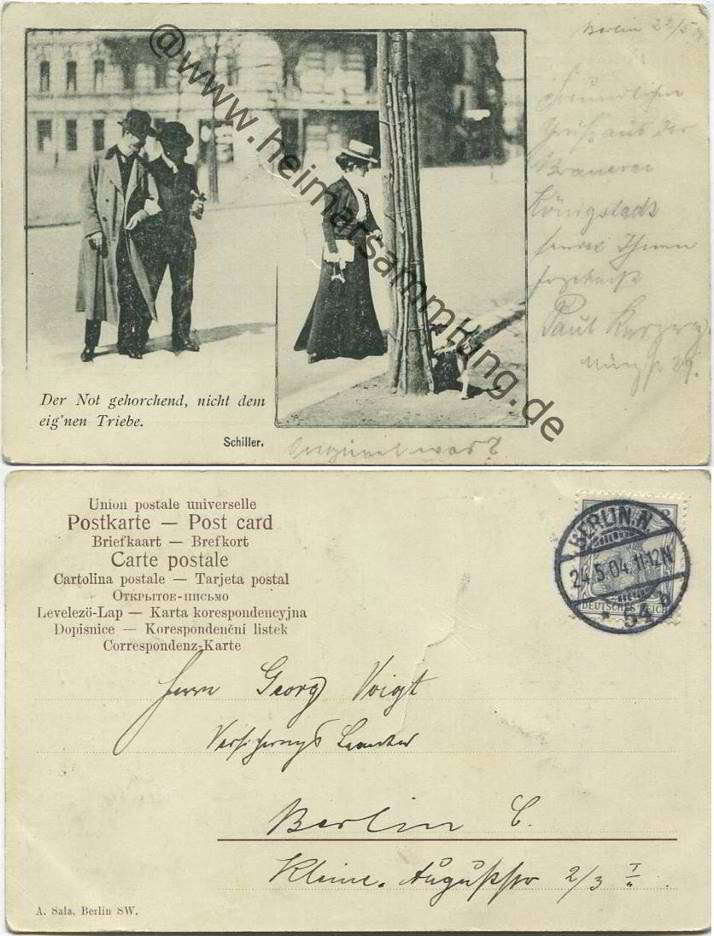 Berlin 23/5
Freundlichen
Gruß aus der
Brauerei
Königstadt
sendet Ihnen
ergebenst
Paul
@www.heimatsammlung.de
Der Not gehorchend, nicht dem
eig'nen Triebe.
Schiller.
Union postale universelle
Postkarte — Post card
Briefkaart — Brefkort
Carte postale
Cartolina postale — Tarjeta postal
Открытое-письмо
Levelező-Lap — Karta korespondencyjna
Dopisnice — Korespondenční listek
Correspondenz-Karte
BERLIN. N.
24.5.04.11-12N
54 b
DEUTSCHES REICH
Herrn Georg Voigt
Versicherungs Beamter
Berlin C.
Kleine. Auguststr 2/3 I
A. Sala, Berlin SW.